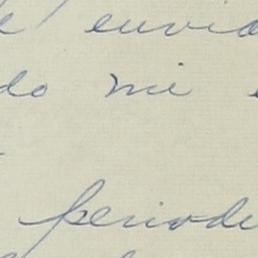 e envia
do mi
periode